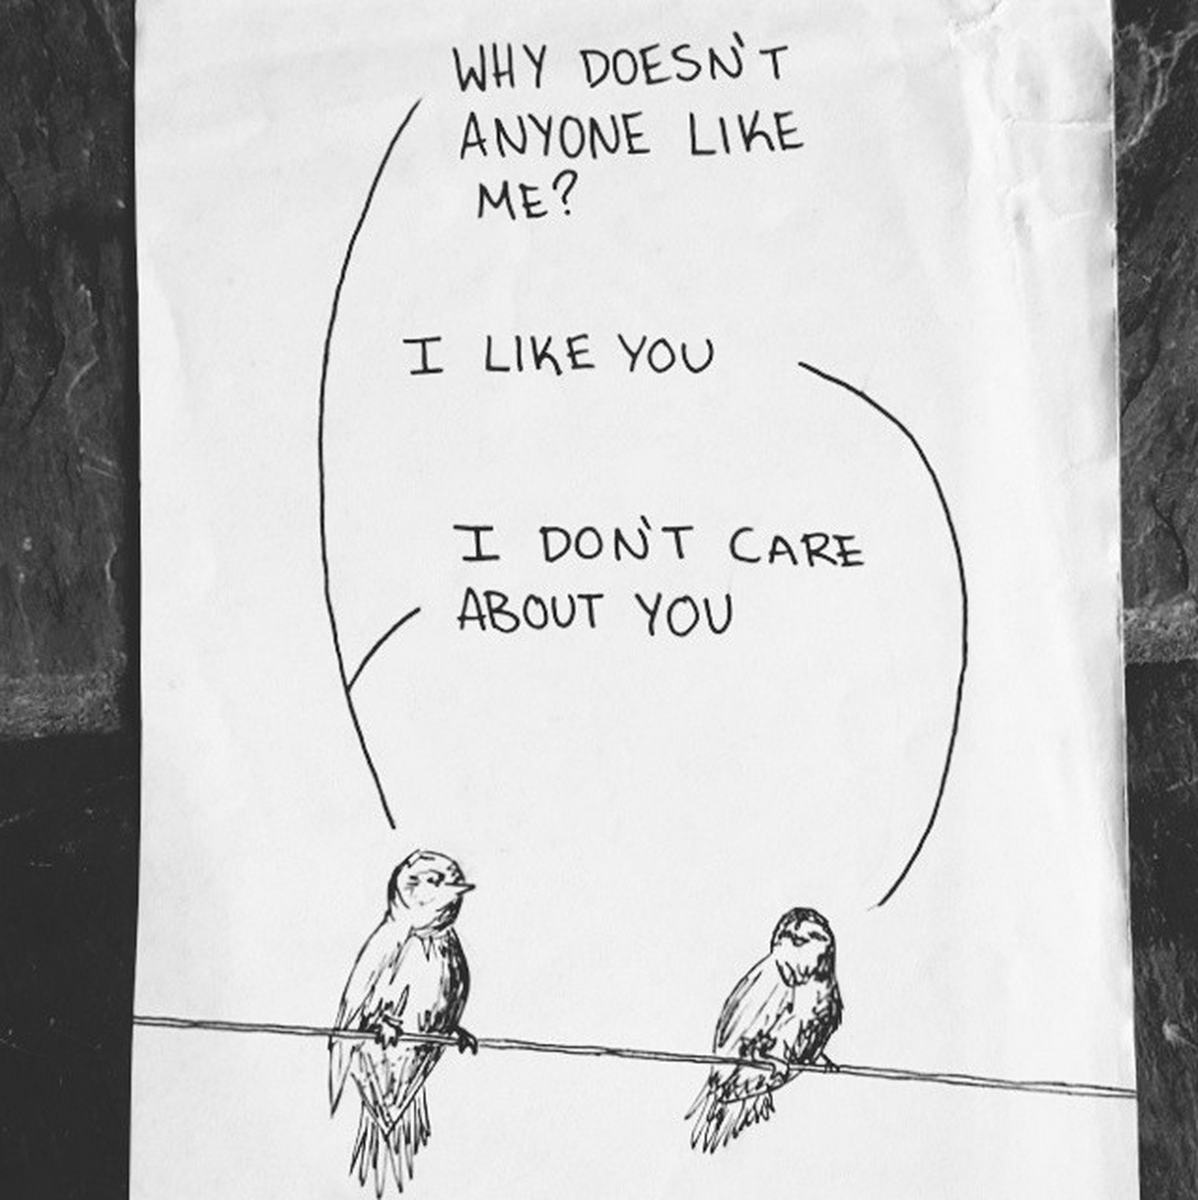 WHY DOESN'T
ANYONE LIKE
ME?
I LIKE YOU
I DON'T CARE
ABOUT YOU